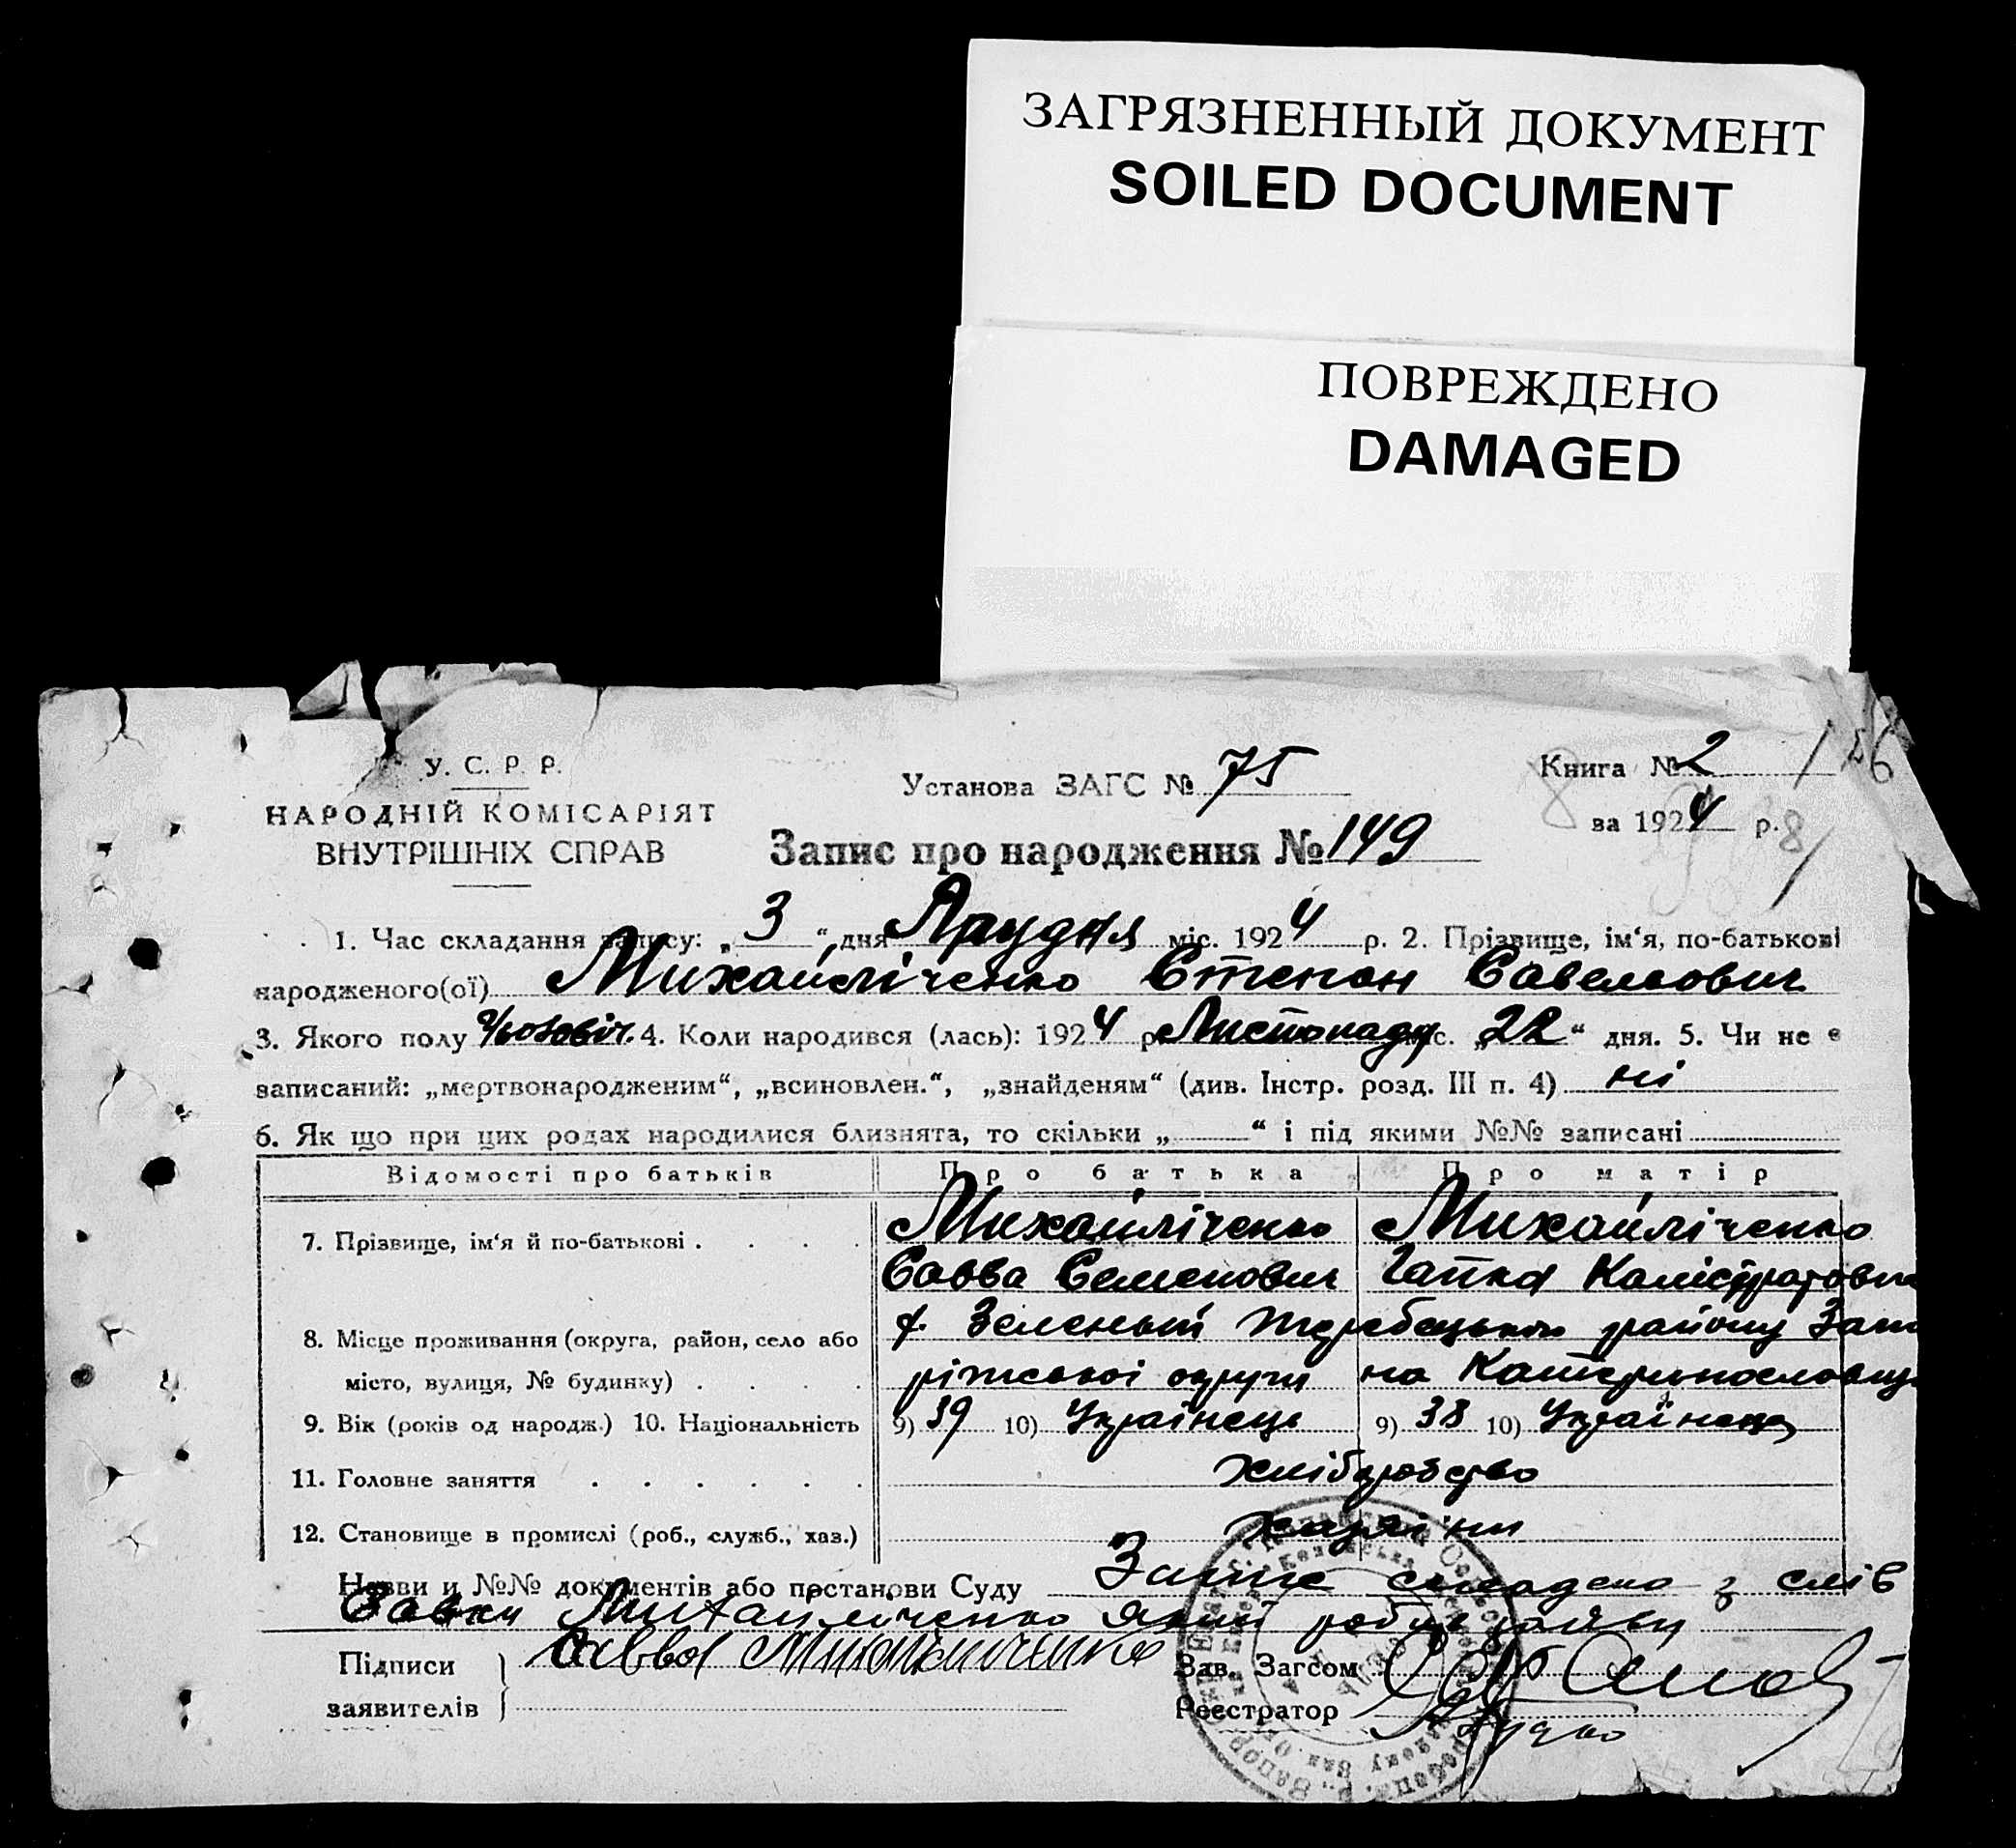 ЗАГРЯЗНЕННЫЙ ДОКУМЕНТ
SOILED DOCUMENT
ПОВРЕЖДЕНО
DAMAGED
У. С. Р. Р.
НАРОДНІЙ КОМІСАРІЯТ
ВНУТРІШНІХ СПРАВ
Установа ЗАГС № 75
Книга № 2
за 1924 р.
Запис про народження № 149
1. Час складання запису: „ 3 “ дня Грудня міс. 1924 р. 2. Прізвище, ім‘я, по-батькові
народженого(ої) Михайліченко Степан Савельович
3. Якого полу чоловіч. 4. Коли народився (лась): 1924 р. Листопаду міс. „ 22 “ дня. 5. Чи не є
записаний: „мертвонародженим“, „всиновлен.“, „знайденям“ (див. Інстр. розд. III п. 4) ні
6. Як що при цих родах народилися близнята, то скільки „ “ і під якими №№ записані
Відомості про батьків Про батька Про матір
7. Прізвище, ім‘я й по-батькові . . . . Михайліченко Михайліченко
Савва Семенович Гапка Калістратовна
8. Місце проживання (округа, район, село або х. Зелений Жеребецького району Запо
місто, вулиця, № будинку) . . . . ріжської округи на Катеринославщ
9. Вік (років од народж.) 10. Національність 9) 39 10) Українець 9) 38 10) Українець
11. Головне заняття . . . . . . хліборобство
12. Становище в промислі (роб., служб., хаз.) хазяіни
Назви и №№ документів або постанови Суду Запис складено з слів
Савки Михайліченко який робив заяву
Підписи
заявителів
Савва Михайличенко
Зав. Загсом
Реестратор